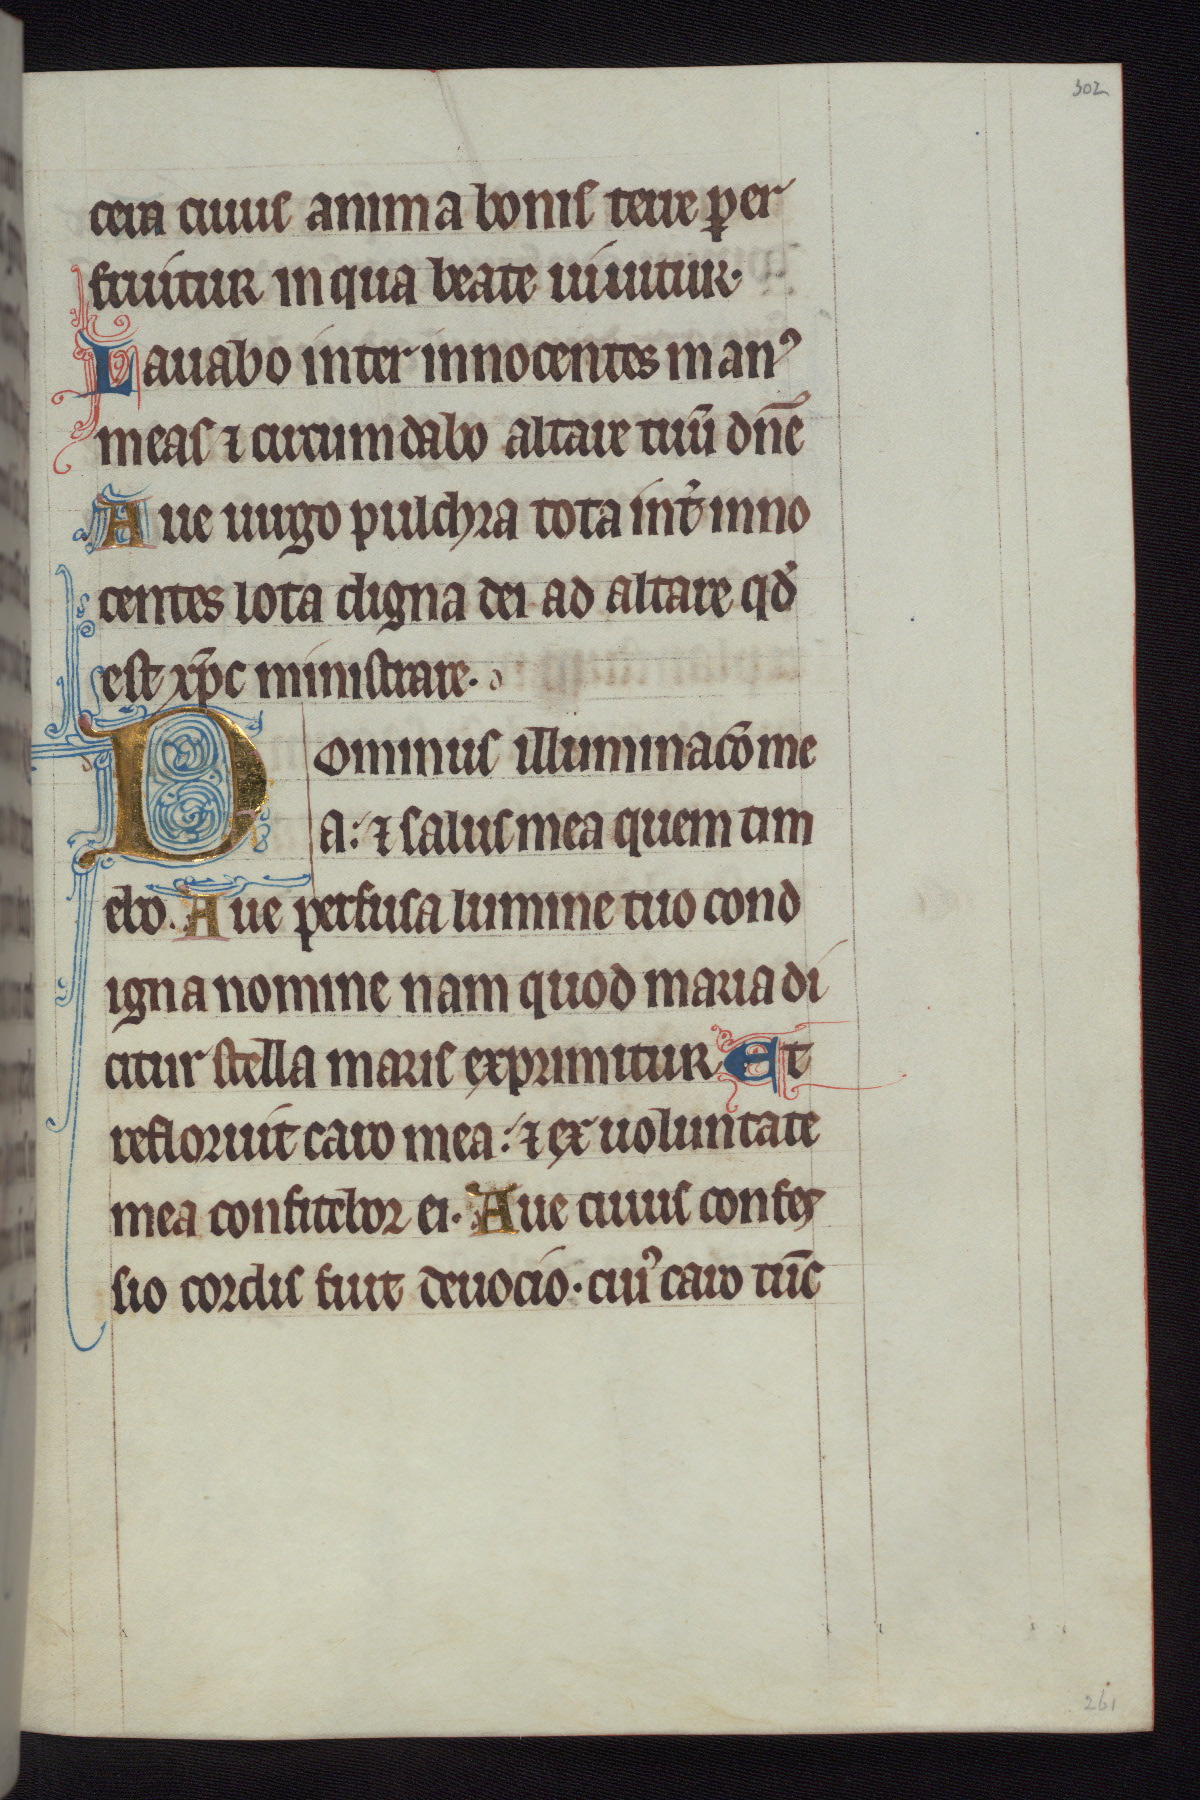 302
cera cuius anima bonis terre per
fruitur in qua beate uiuitur.
Lauabo inter innocentes man᾿
meas ⁊ circumdabo altare tuū dn̄e
Aue uirgo pulchra tota int̾ inno
centes lota digna dei ad altare qd̾
est xp̄c ministrare.
Dominus illuminac̄o me
a: ⁊ salus mea quem tim
ebo. Aue perfusa lumine tuo cond
igna nomine nam quod maria di
citur stella maris exprimitur Et
refloruit caro mea: ⁊ ex uoluntate
mea confitebor ei. Aue cuius confes
sio cordis fuit deuocio. cui᾿ caro tūc
261